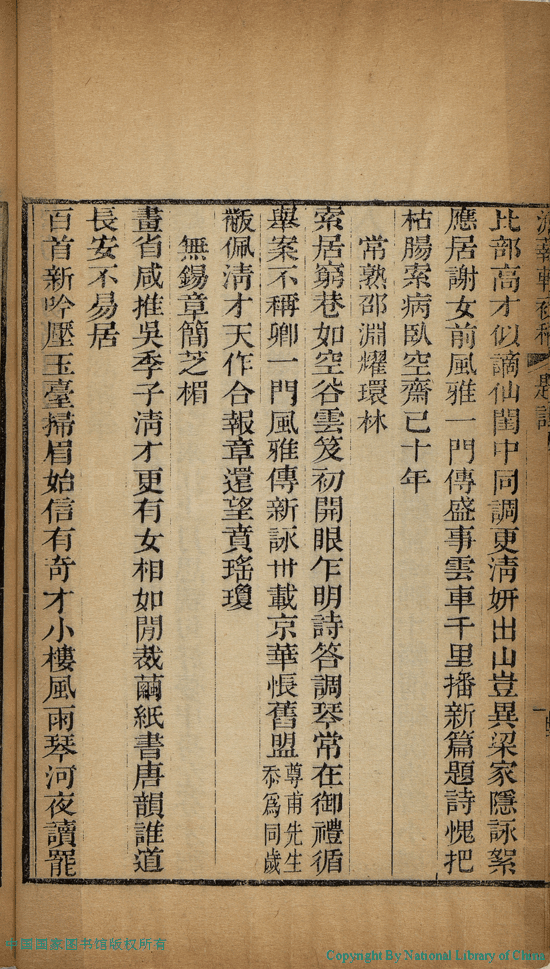 比部高才似謫仙閨中同調更清妍出山豈異梁家隱詠絮
應居謝女前風雅一門傳盛事雲車千里播新篇題詩愧把
枯腸索病臥空齋已十年
常熟邵淵耀環林
索居窮巷如空谷雲笈初開眼乍明詩答調琴常在御禮循
舉案不稱卿一門風雅傳新詠卅載京華悵舊盟尊甫先生忝爲同歲
黻佩清才天作合報章還望賁瑤瓊
無錫章簡芝楣
畫省咸推吳季子清才更有女相如閒裁繭紙書唐韻誰道
長安不易居
百首新吟壓玉臺掃眉始信有奇才小樓風雨琴河夜讀罷
中国国家图书馆版权所有
Copyright By National Library of China